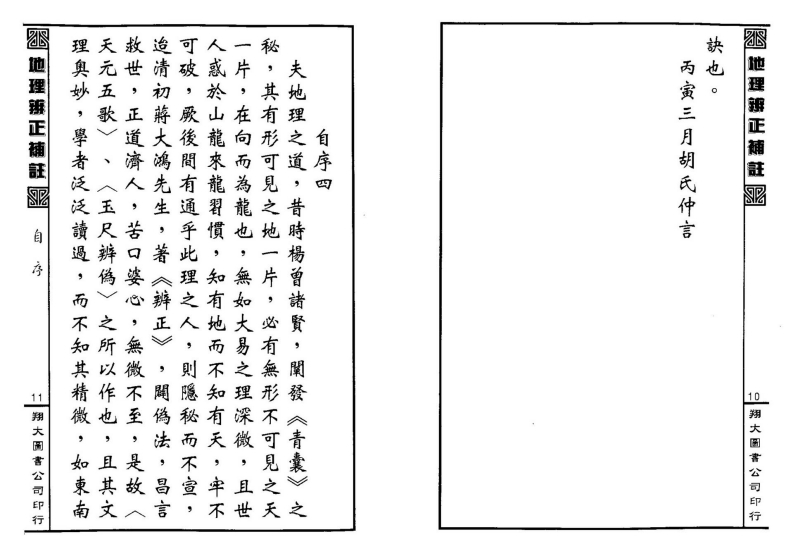 地理辨正補註
10
翔大圖書公司印行
訣也。
丙寅三月胡氏仲言
自序四
夫地理之道，昔時楊曾諸賢，闡發《青囊》之
秘，其有形可見之地一片，必有無形不可見之天
一片，在向而為龍也，無如大易之理深微，且世
人惑於山龍來龍習慣，知有地而不知有天，牢不
可破，厥後間有通乎此理之人，則隱秘而不宣，
迨清初蔣大鴻先生，著《辨正》，闢偽法，昌言
救世，正道濟人，苦口婆心，無微不至，是故〈
天元五歌〉、〈玉尺辨偽〉之所以作也，且其文
理奧妙，學者泛泛讀過，而不知其精微，如東南
地理辨正補註
自序
11
翔大圖書公司印行